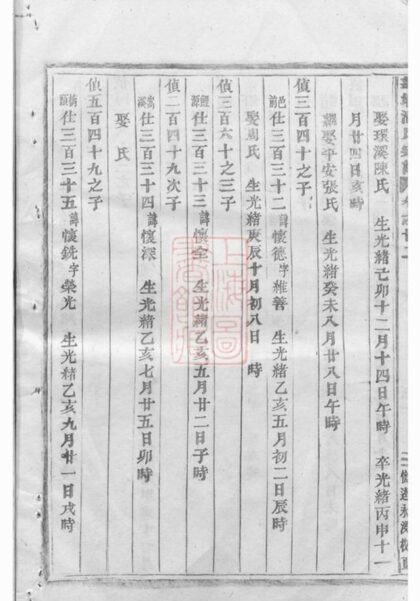 娶環溪陳氏 生光緒己卯十二月十四日午時 卒光緒丙申十一
月廿四日亥時
繼娶平安張氏 生光緒癸未八月廿八日午時
傎三百四十之子
邑前仕三百三十二諱懷德字維善 生光緒乙亥五月初二日辰時
娶周氏 生光緒庚辰十月初八日 時
傎三百六十之三子
鯉源仕三百三十三諱懷全 生光緒乙亥五月廿二日子時
傎二百四十九次子
嵩溪仕三百三十四諱懷深 生光緒乙亥七月廿五日卯時
娶 氏
傎五百四十九之子
頭仕三百三十五諱懷銑字榮光 生光緒乙亥九月廿一日戌時
上海圖